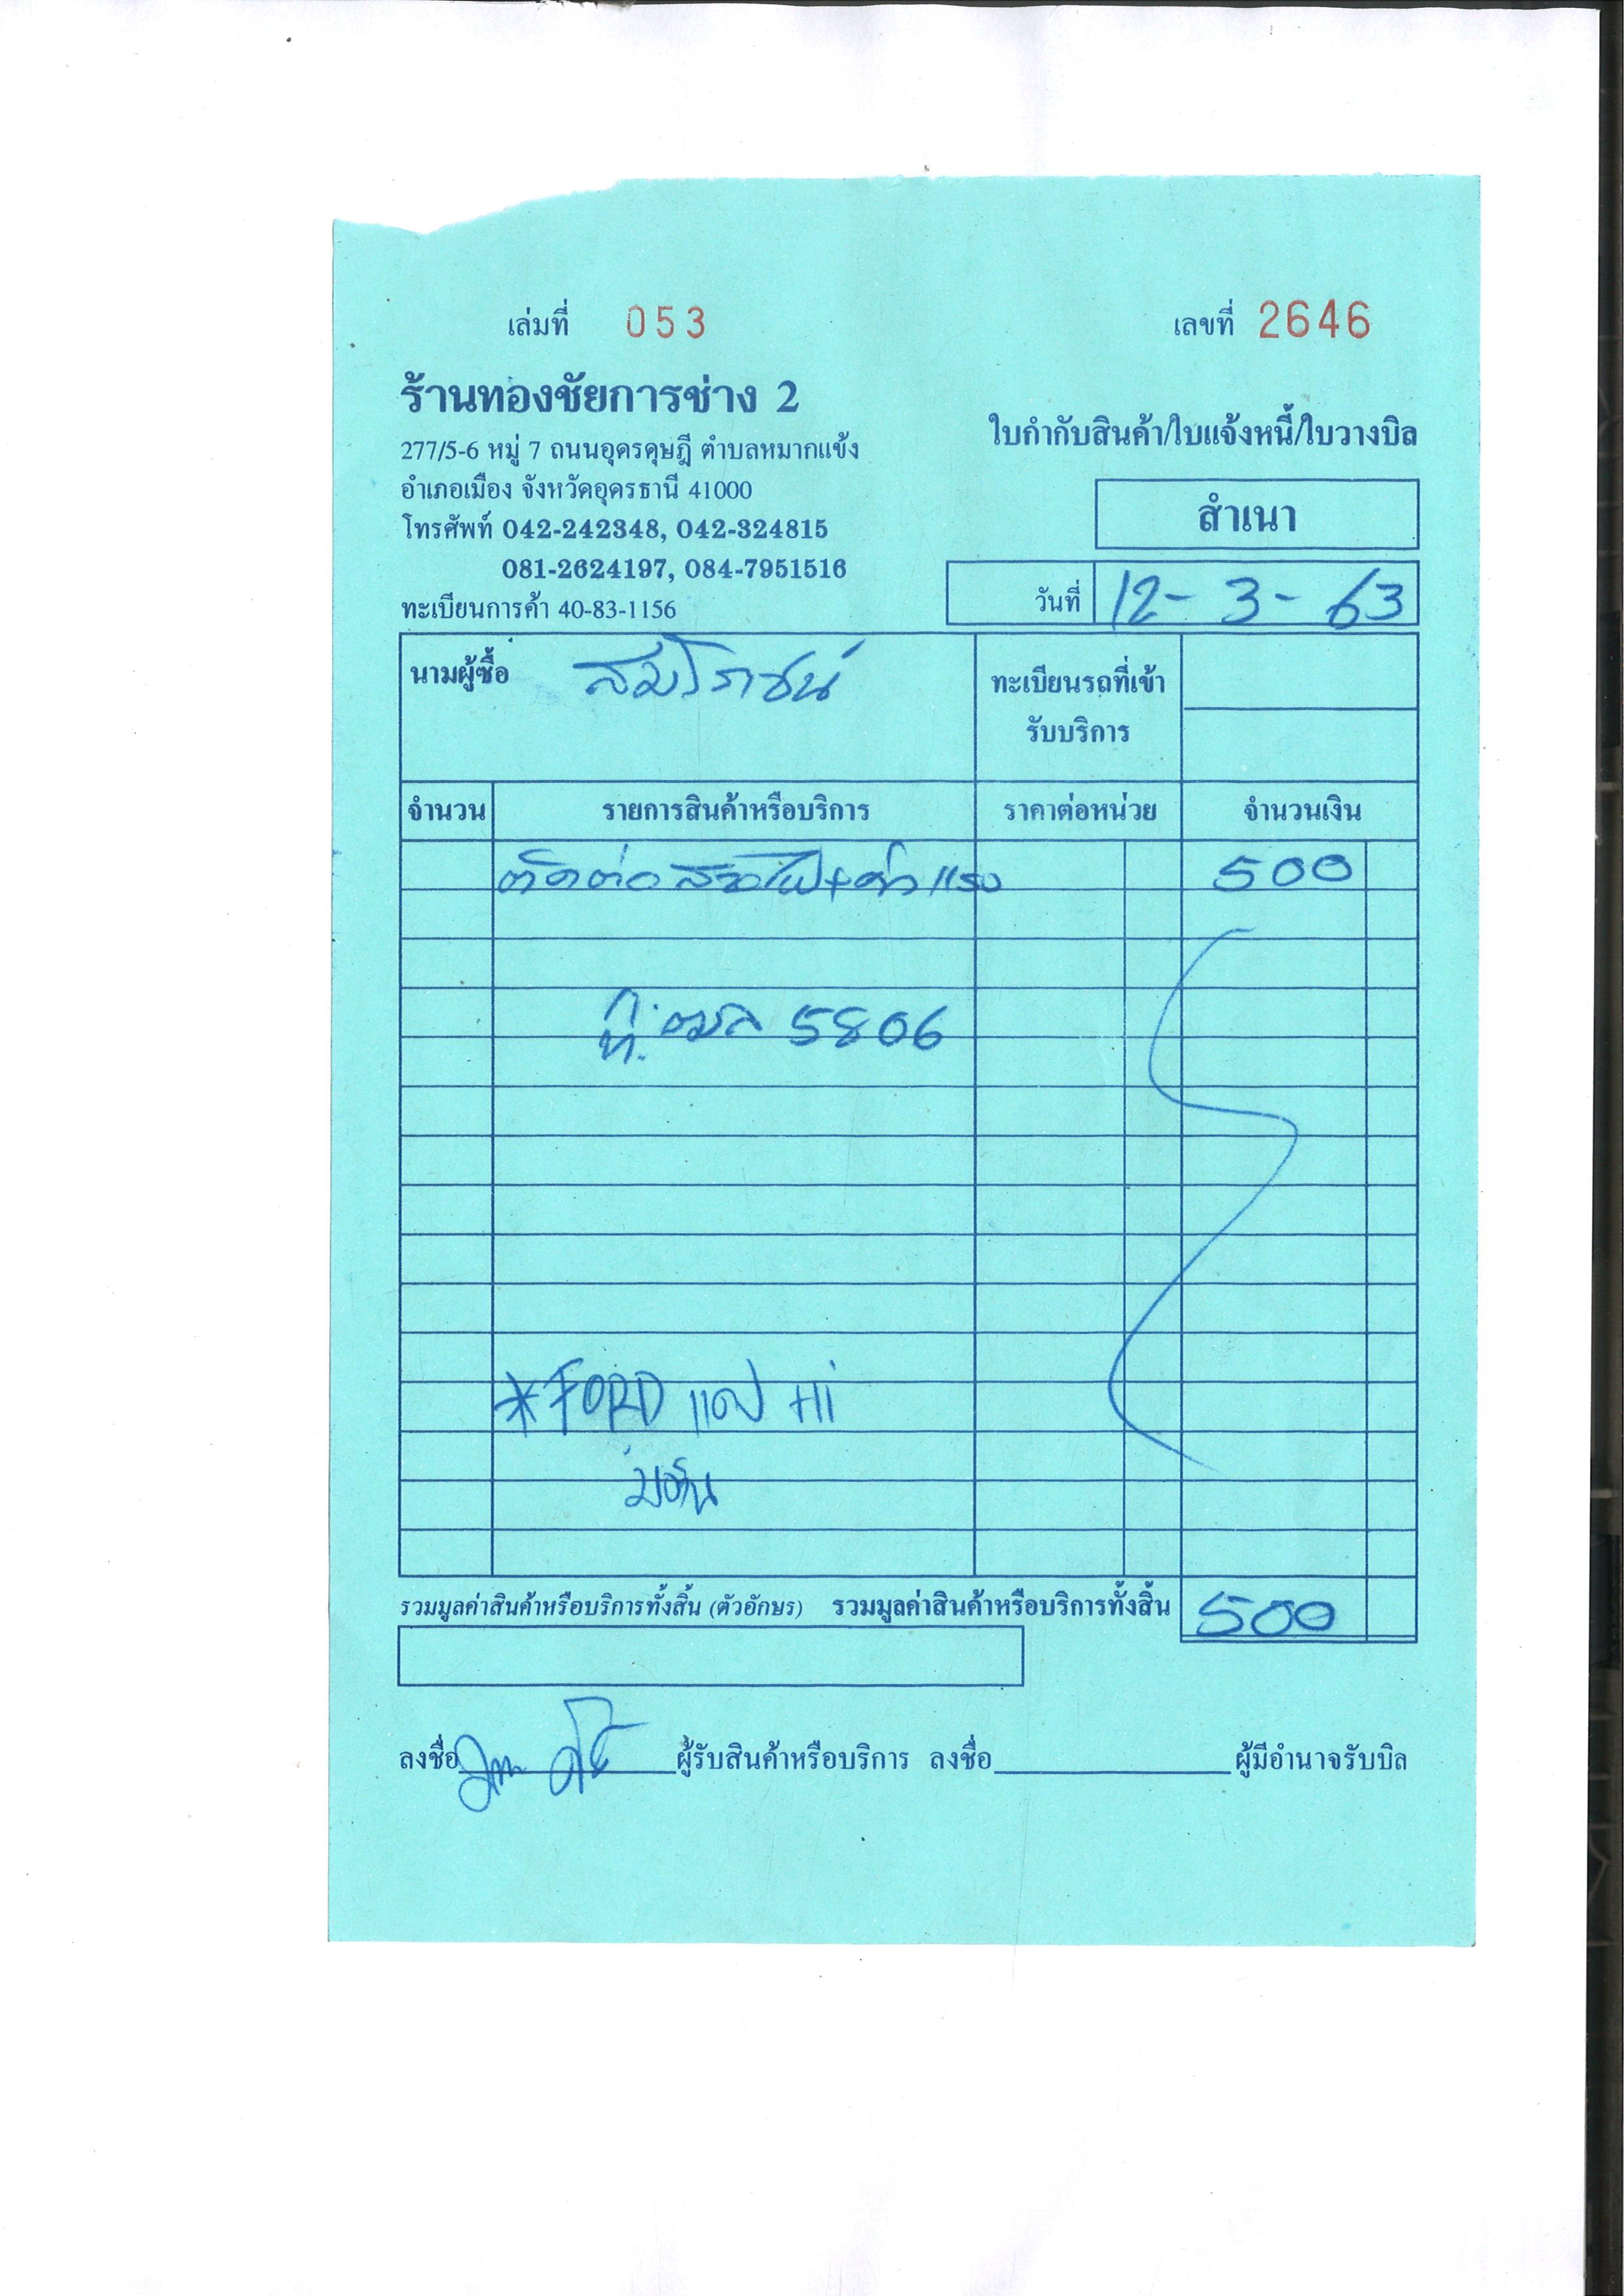 เล่มที่ 053 เลขที่ 2646
ร้านทองชัยการช่าง 2
ใบกำกับสินค้า/ใบแจ้งหนี้/ใบวางบิล
277/5-6 หมู่ 7 ถนนอุดรดุษฎี ตำบลหมากแข้ง
อำเภอเมือง จังหวัดอุดรธานี 41000
สำเนา
โทรศัพท์ 042-242348, 042-324815
081-2624197, 084-7951516
วันที่ 12-3-63
ทะเบียนการค้า 40-83-1156
นามผู้ซื้อ สมโภชน์ ทะเบียนรถที่เข้า
รับบริการ
จำนวน รายการสินค้าหรือบริการ ราคาต่อหน่วย จำนวนเงิน
ตัดต่อสายไฟ+ค่าแรง 500
5806
*FORD HI
รวมมูลค่าสินค้าหรือบริการทั้งสิ้น (ตัวอักษร) รวมมูลค่าสินค้าหรือบริการทั้งสิ้น 500
ลงชื่อ ผู้รับสินค้าหรือบริการ ลงชื่อ ผู้มีอำนาจรับบิล